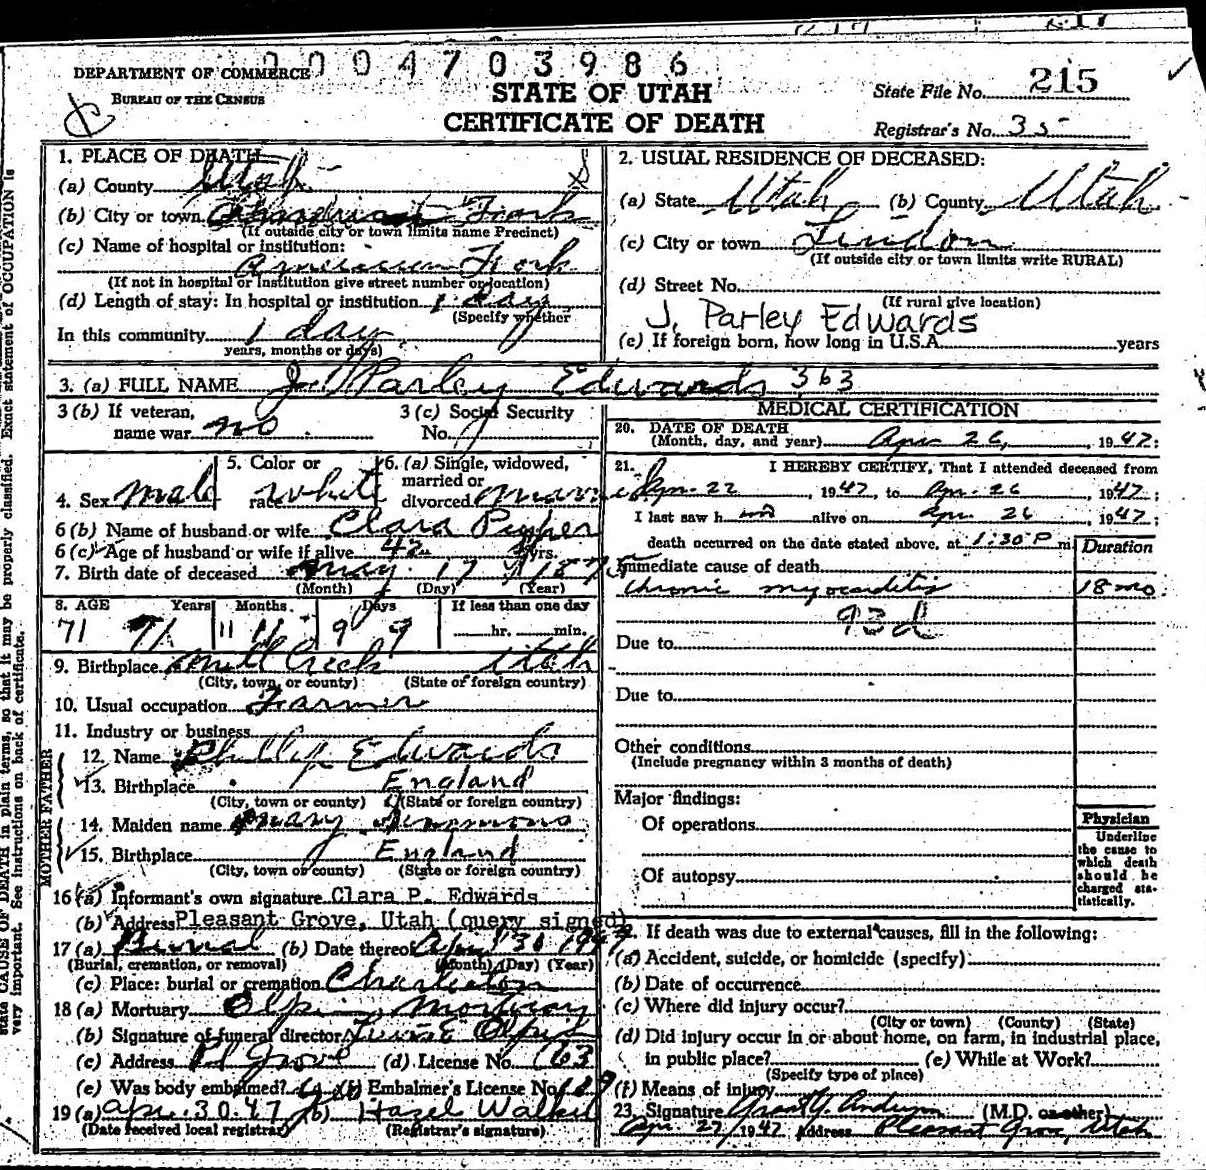 0004703986
DEPARTMENT OF COMMERCE
BUREAU OF THE CENSUS
STATE OF UTAH
CERTIFICATE OF DEATH
State File No. 215
Registrar's No. 35
1. PLACE OF DEATH
(a) County Utah
(b) City or town American Fork
(If outside city or town limits name Precinct)
(c) Name of hospital or institution:
American Fork
(If not in hospital or institution give street number or location)
(d) Length of stay: In hospital or institution 1 day
(Specify whether
In this community 1 day
years, months or days)
2. USUAL RESIDENCE OF DECEASED:
(a) State Utah (b) County Utah
(c) City or town Lindon
(If outside city or town limits write RURAL)
(d) Street No.
(If rural give location)
J. Parley Edwards
(e) If foreign born, how long in U.S.A. years
3. (a) FULL NAME J. Parley Edwards 363
3 (b) If veteran, name war no
3 (c) Social Security No.
4. Sex Male
5. Color or race white
6. (a) Single, widowed, married or divorced married
6 (b) Name of husband or wife Clara
6 (c) Age of husband or wife if alive 42 yrs.
7. Birth date of deceased May 17 1875
(Month) (Day) (Year)
8. AGE Years Months Days If less than one day
71 71 11 11 9 9 hr. min.
9. Birthplace Mill Creek Utah
(City, town, or county) (State or foreign country)
10. Usual occupation Farmer
11. Industry or business
FATHER
12. Name Phillip Edwards
13. Birthplace England
(City, town or county) (State or foreign country)
MOTHER
14. Maiden name Mary Simmons
15. Birthplace England
(City, town or county) (State or foreign country)
16 (a) Informant's own signature Clara P. Edwards
(b) Address Pleasant Grove, Utah (query signed)
17 (a) Burial (b) Date thereof Apr 30 1947
(Burial, cremation, or removal) (Month) (Day) (Year)
(c) Place: burial or cremation Charleston
18 (a) Mortuary Olpin Mortuary
(b) Signature of funeral director Olpin
(c) Address Pl Grove (d) License No. 163
(e) Was body embalmed? yes (f) Embalmer's License No. 189
19 (a) Apr. 30.47 (b) Hazel Walker
(Date received local registrar) (Registrar's signature)
MEDICAL CERTIFICATION
20. DATE OF DEATH
(Month, day, and year) Apr 26, 1947;
21. I HEREBY CERTIFY, That I attended deceased from
Apr. 22, 1947, to Apr. 26 1947;
I last saw him alive on Apr. 26 1947;
death occurred on the date stated above, at 1:30 P m.
Duration
Immediate cause of death
Chronic myocarditis 18 mo.
93d
Due to
Due to
Other conditions
(Include pregnancy within 3 months of death)
Major findings:
Of operations
Of autopsy
Physician
Underline
the cause to
which death
should be
charged sta-
tistically.
22. If death was due to external causes, fill in the following:
(a) Accident, suicide, or homicide (specify)
(b) Date of occurrence
(c) Where did injury occur?
(City or town) (County) (State)
(d) Did injury occur in or about home, on farm, in industrial place,
in public place? (e) While at Work?
(Specify type of place)
(f) Means of injury
23. Signature Grant Y. Anderson (M.D. or other)
Apr 27/1947 Address Pleasant Grove, Utah
state CAUSE OF DEATH in plain terms, so that it may be properly classified. Exact statement of OCCUPATION is
very important. See instructions on back of certificate.